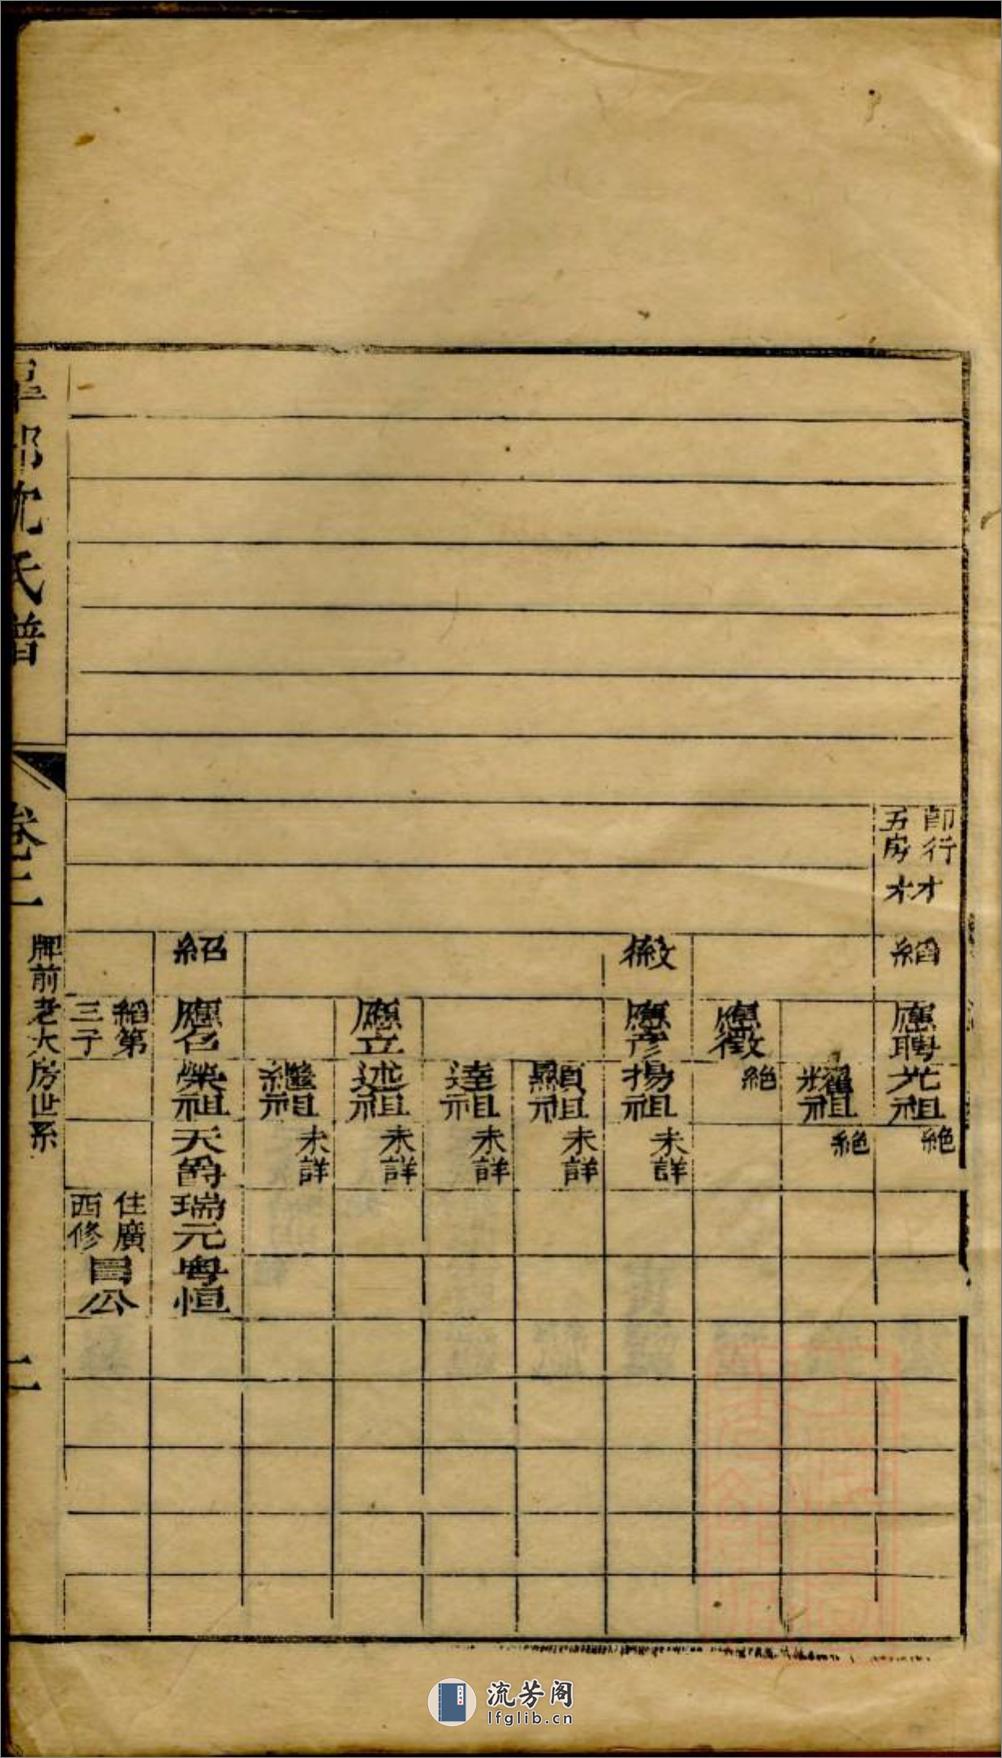 即行才
五房才
縚
應聘
光祖
絶
耀祖
絶
應徵
絶
徽
應彦
揚祖
未詳
顯祖
未詳
達祖
未詳
應立
述祖
未詳
繼祖
未詳
紹
應召
榮祖
天爵
瑞元
粤恒
縚第
三子
住廣
西修
公
沈氏譜
卷二
牌前老大房世系
二
流芳阁
lfglib.cn